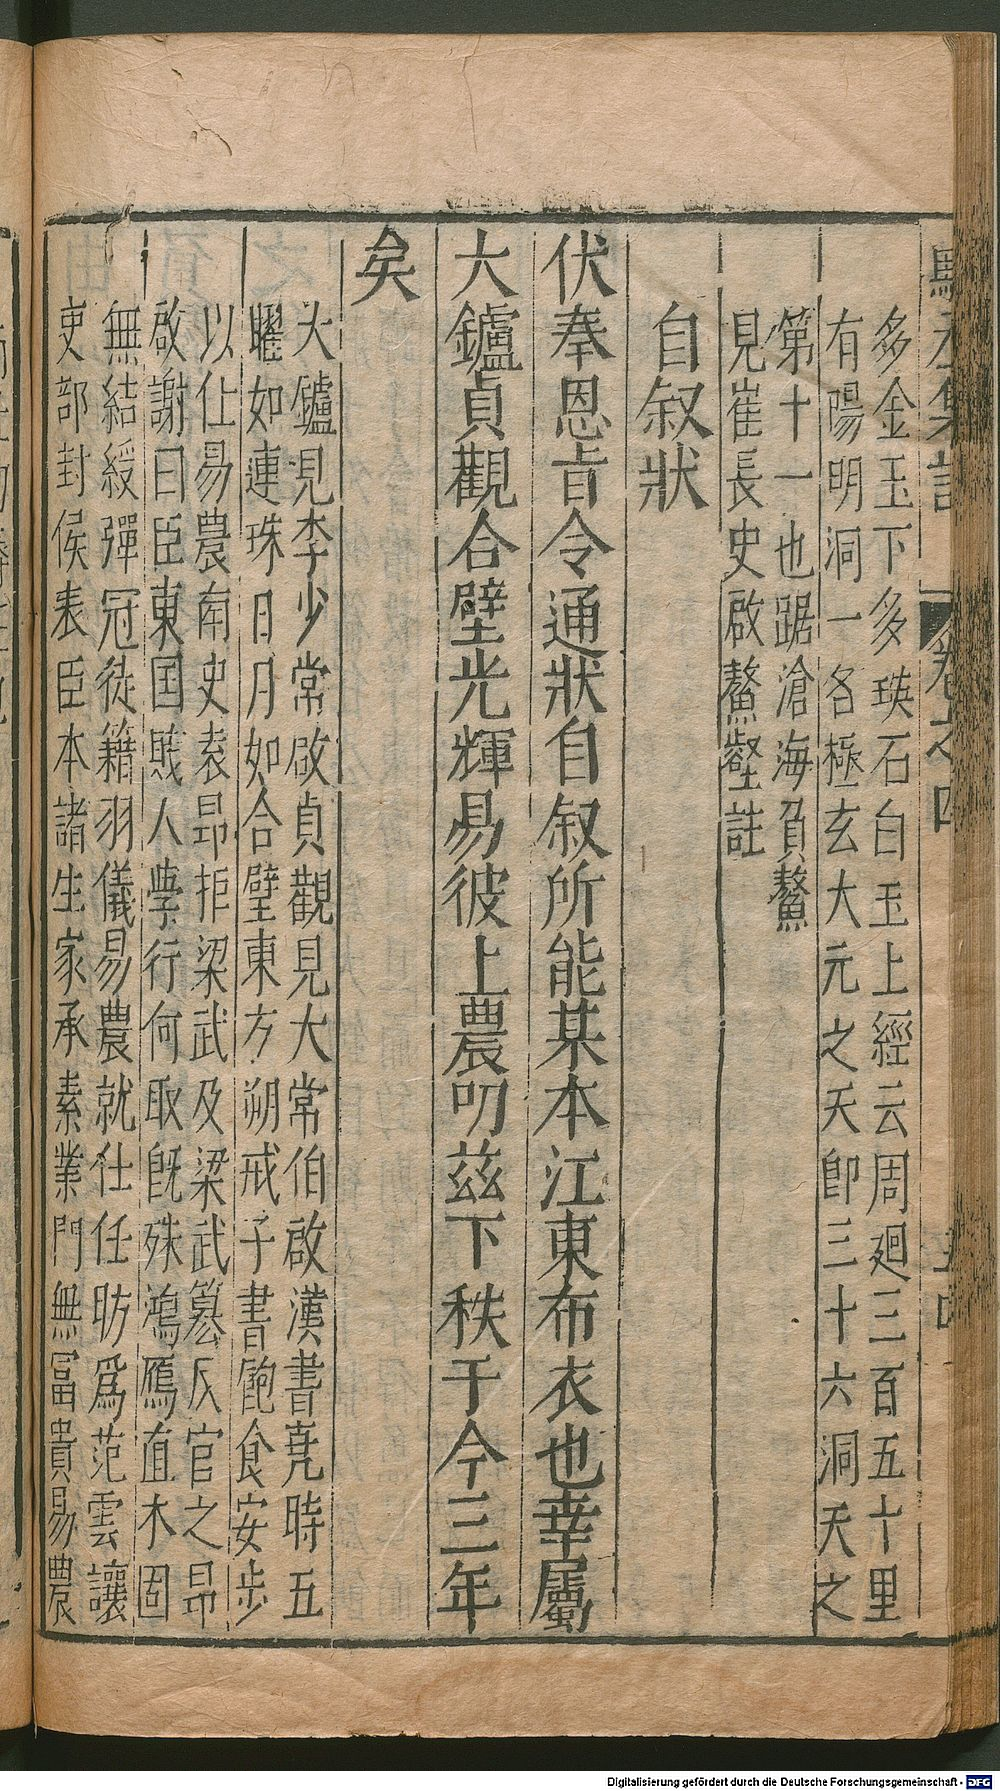 多金玉下多瑛石白玉上經云周廻三百五十里
有陽明洞一名極玄大元之天即三十六洞天之
第十一也踞滄海負鰲
見崔長史啟鰲壑註
自叙狀
伏奉恩旨令通狀自叙所能某本江東布衣也幸屬
大鑪貞觀合壁光輝易彼上農叨茲下秩于今三年
矣
大鑪見李少常啟貞觀見大常伯啟漢書堯時五
曜如連珠日月如合璧東方朔戒子書飽食安步
以仕易農南史袁昂拒梁武及梁武簒反官之昂
啟謝曰臣東国賎人學行何取旣殊鴻鴈直木固
無結綬彈冠徒籍羽儀易農就仕任昉爲范雲讓
吏部封侯表臣本諸生家承素業門無冨貴易農
卷之四
Digitalisierung gefördert durch die Deutsche Forschungsgemeinschaft - DFG